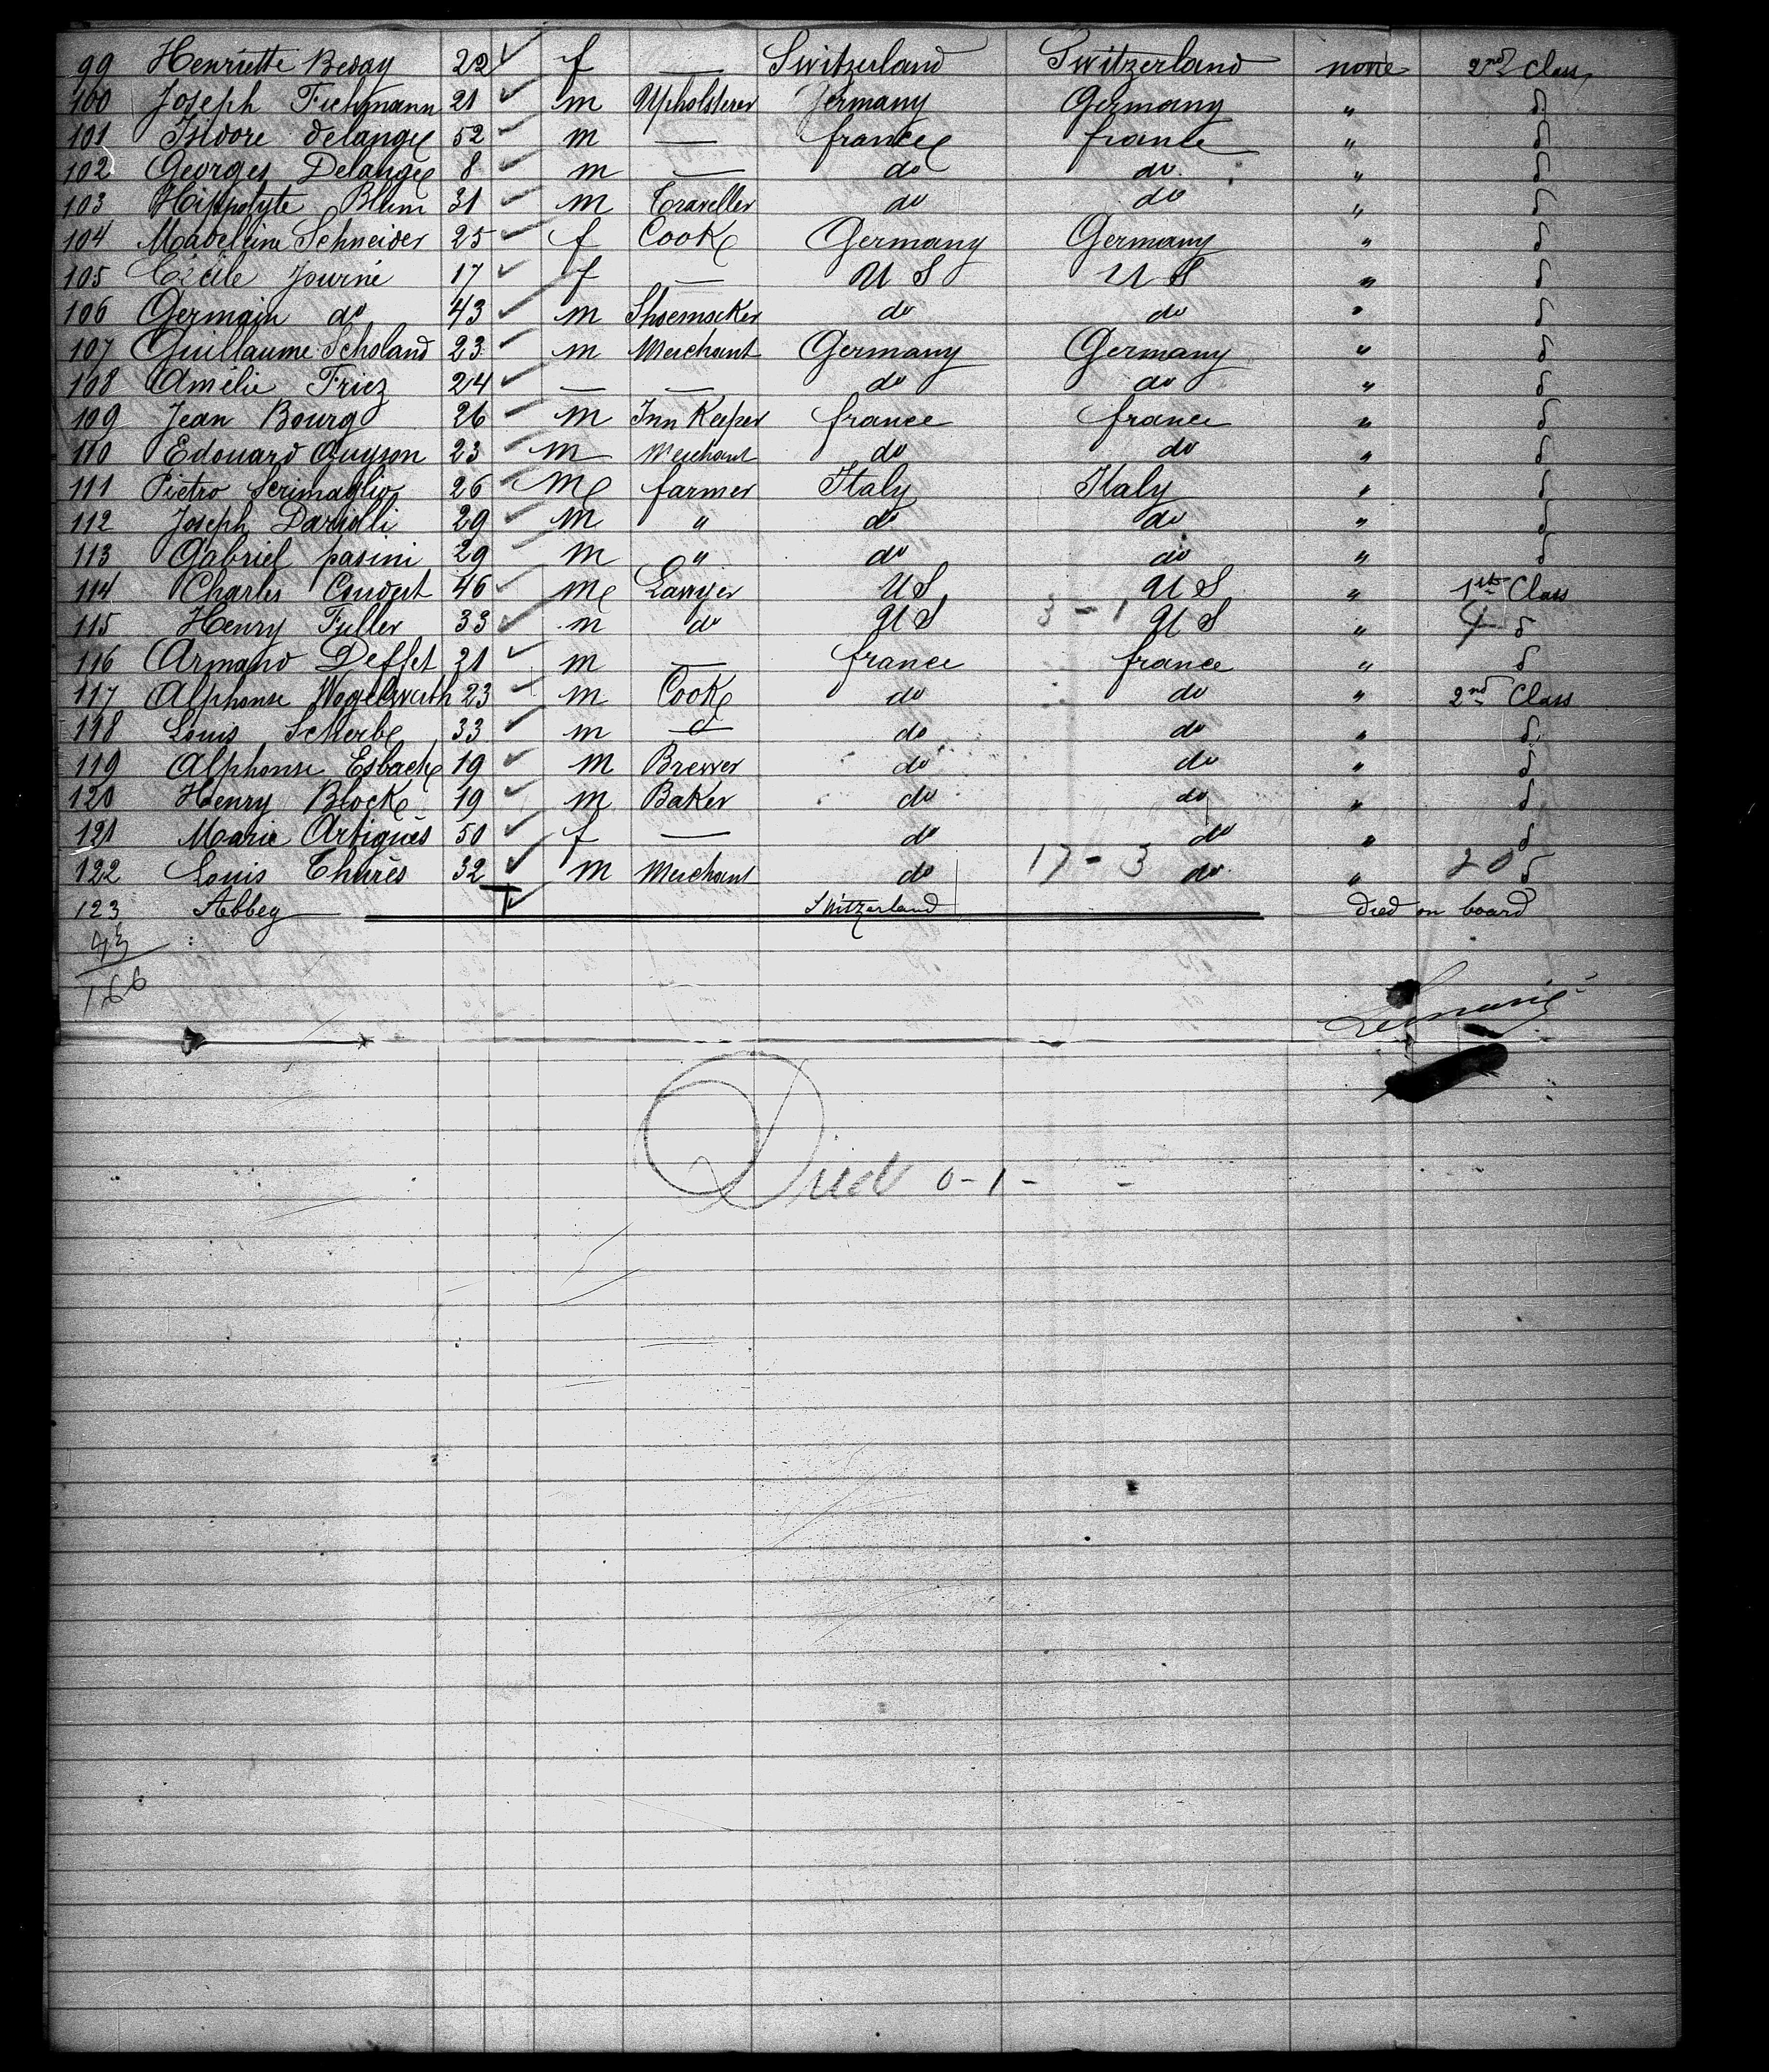 99 Henriette Beday 22 f — Switzerland Switzerland none 2nd Class
100 Joseph Fichmann 21 m Upholsterer Germany Germany " d
101 Isidore Delange 52 m — france france " d
102 Georges Delange 8 m — do do " d
103 Hippolyte Blum 31 m Traveller do do " d
104 Madeleine Schneider 25 f Cook Germany Germany " d
105 Cécile Journé 17 f — U S U S " d
106 Germain do 43 m Shoemacker do do " d
107 Guillaume Scholand 23 m Merchant Germany Germany " d
108 Amélie Friez 24 — — do do " d
109 Jean Bourg 26 m Inn Keeper france france " d
110 Edouard Guyson 23 m Merchant do do " d
111 Pietro Scrimaglio 26 m farmer Italy Italy " d
112 Joseph 29 m " do do " d
113 Gabriel pasini 29 m " do do " d
114 Charles Coudert 46 m Lawyer U S U S " 1st Class
115 Henry Fuller 33 m do U S 3 - 1 U S " 4 d
116 Armand Deffet 21 m — france france " d
117 Alphonse 23 m Cook do do " 2nd Class
118 Louis Scherbe 33 m d do do " d
119 Alphonse Esback 19 m Brewer do do " d
120 Henry Block 19 m Baker do do " d
121 Marie Artiguès 50 f — do do " d
122 Louis Thurès 32 m Merchant do 17 - 3 do " 20 d
123 Abbey Switzerland Died on board
43
166
Died 0 - 1 - -